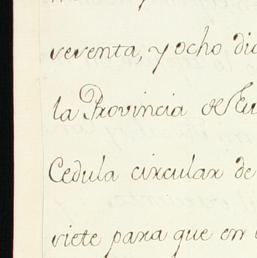 reventa, y ocho di
la Provincia de
Cedula circular de
viete para que en